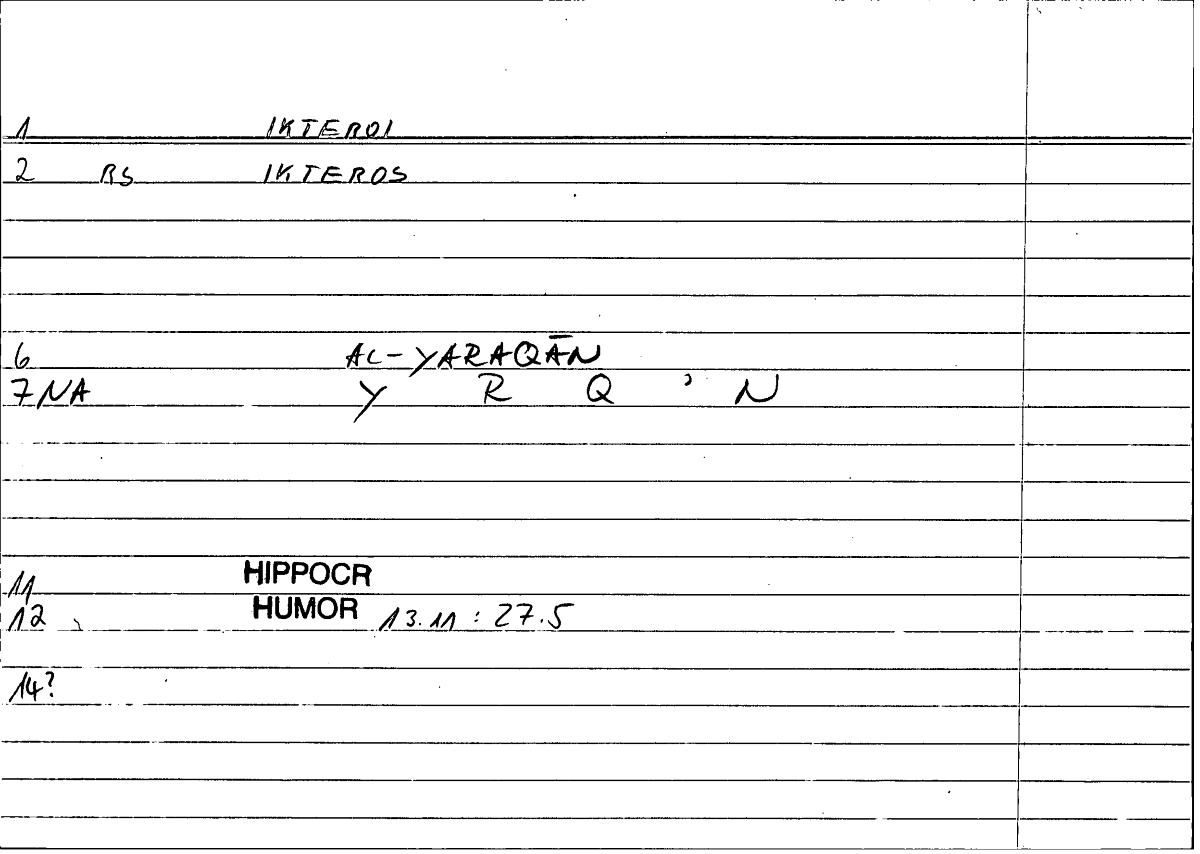 1 IKTEROI
2 RS IKTEROS
6 AL-YARAQĀN
7 NA Y R Q ʾ N
11 HIPPOCR
12 HUMOR 13.11 : 27.5
14?